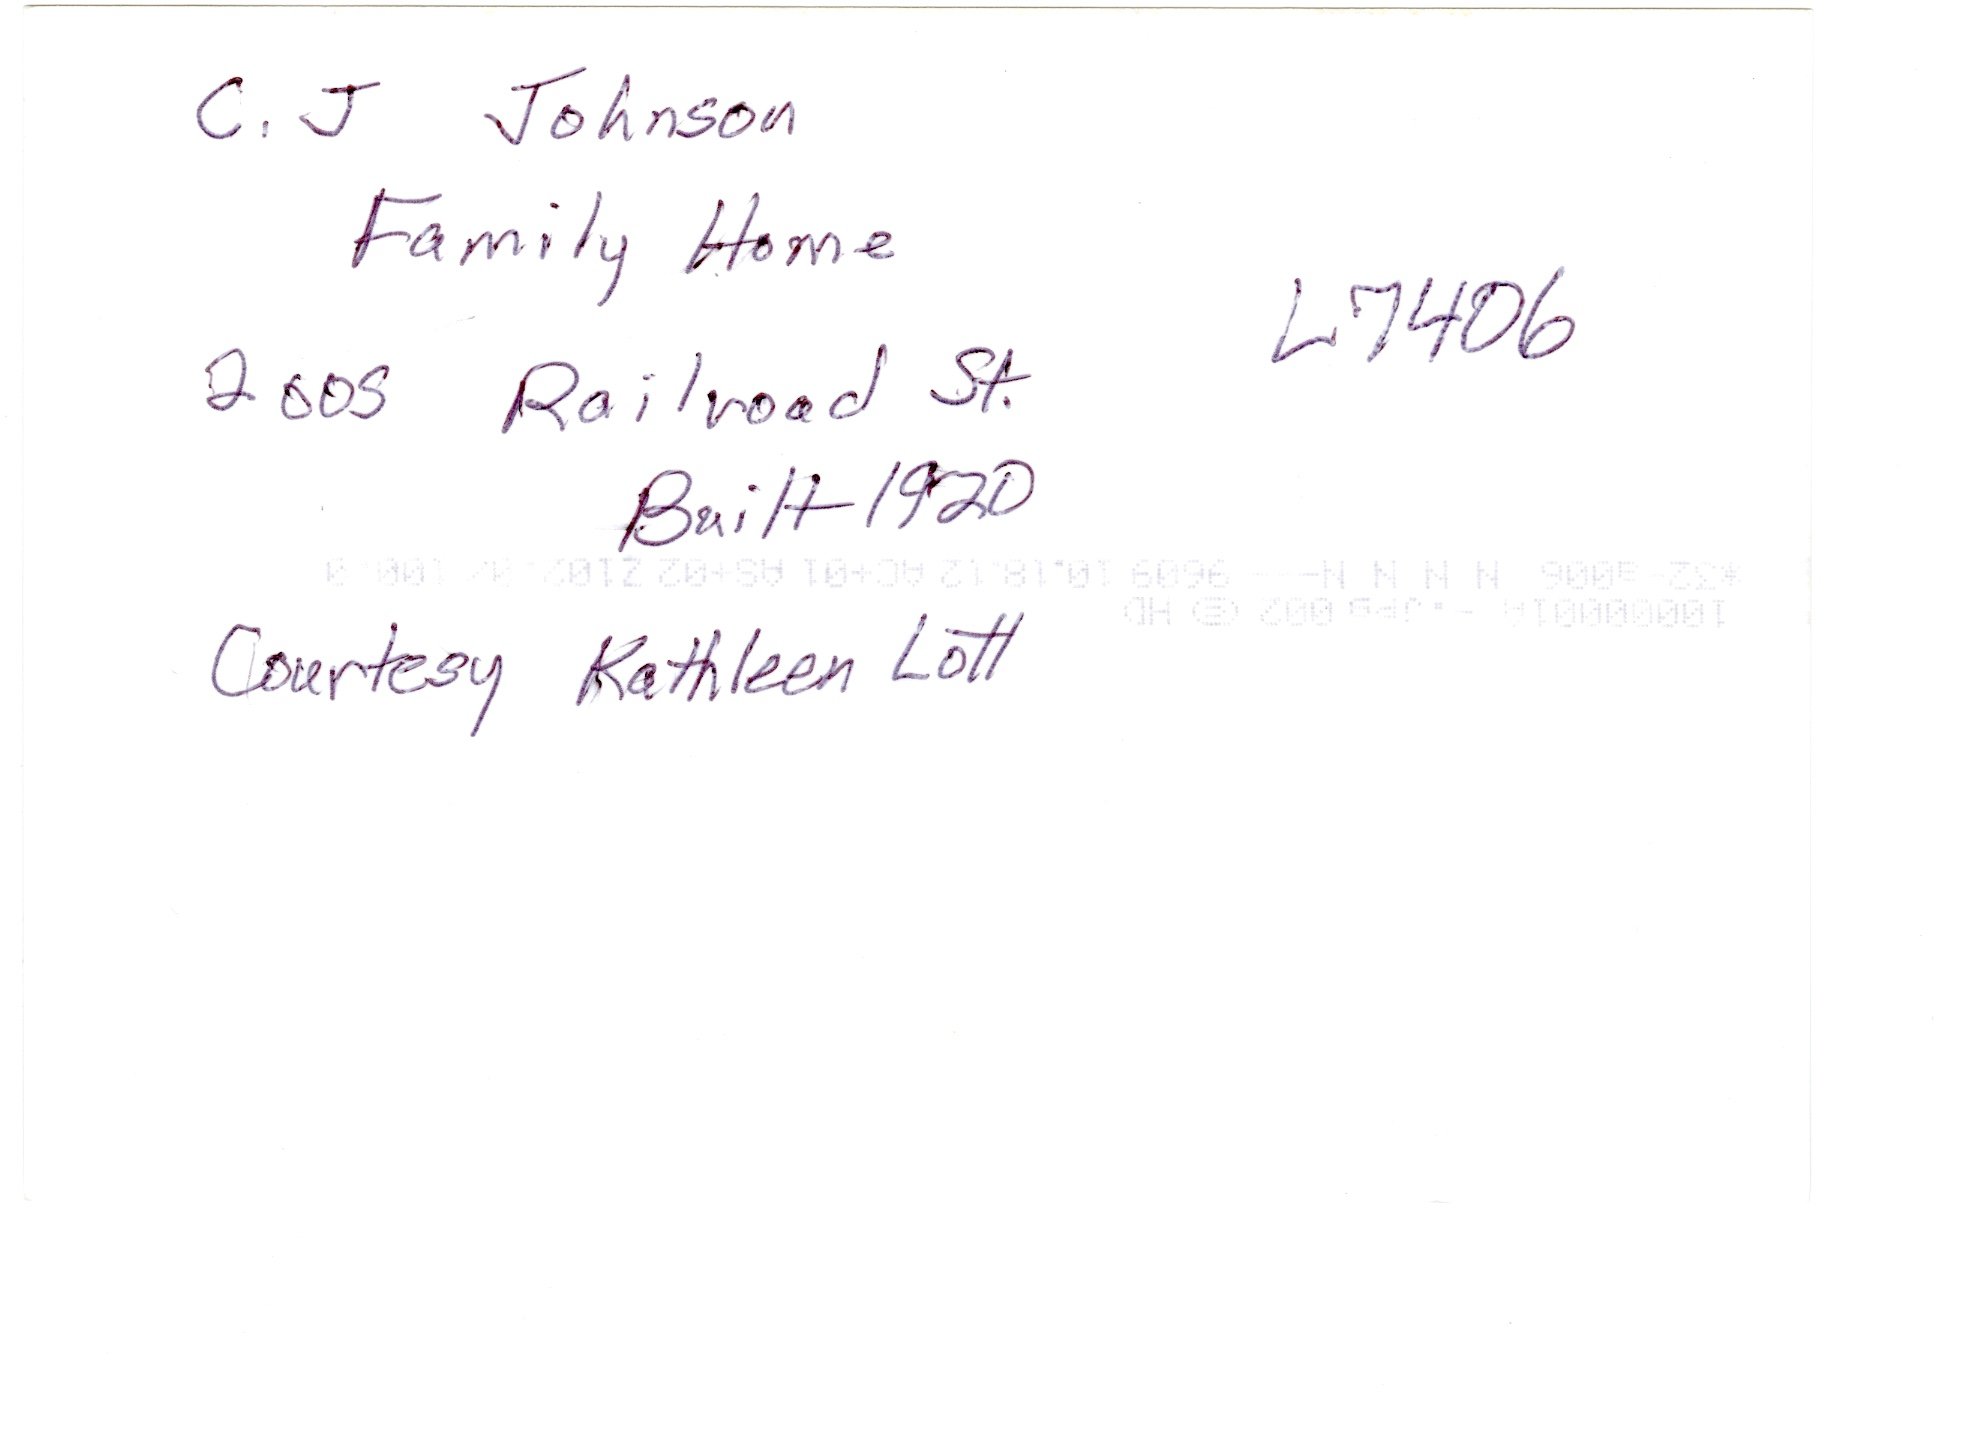 C. J Johnson
Family Home
L7406
2005 Railroad St.
Built 1920
Courtesy Kathleen Lott